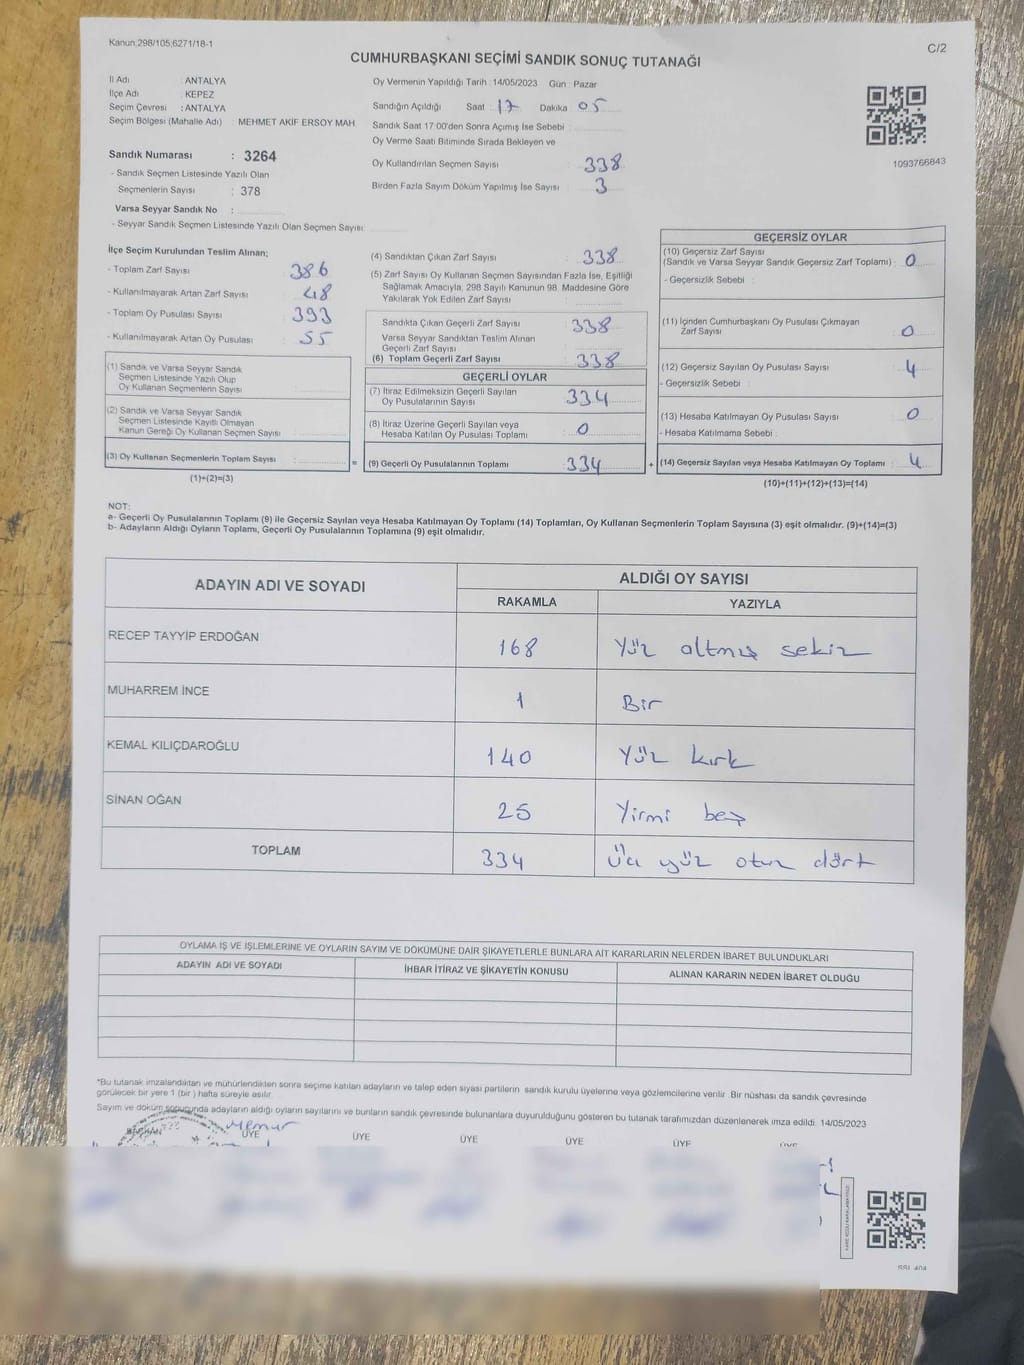 Kanun,298/105,6271/18-1
C/2
CUMHURBAŞKANI SEÇİMİ SANDIK SONUÇ TUTANAĞI
İl Adı : ANTALYA
İlçe Adı : KEPEZ
Seçim Çevresi : ANTALYA
Seçim Bölgesi (Mahalle Adı) : MEHMET AKİF ERSOY MAH
Sandık Numarası : 3264
- Sandık Seçmen Listesinde Yazılı Olan
Seçmenlerin Sayısı : 378
Varsa Seyyar Sandık No :
- Seyyar Sandık Seçmen Listesinde Yazılı Olan Seçmen Sayısı:
Oy Vermenin Yapıldığı Tarih : 14/05/2023 Gün : Pazar
Sandığın Açıldığı Saat : 17 Dakika : 05
Sandık Saat 17:00'den Sonra Açımış İse Sebebi :
Oy Verme Saati Bitiminde Sırada Bekleyen ve
Oy Kullandırılan Seçmen Sayısı : 338
Birden Fazla Sayım Döküm Yapılmış İse Sayısı : 3
1093766843
İlçe Seçim Kurulundan Teslim Alınan;
- Toplam Zarf Sayısı : 386
- Kullanılmayarak Artan Zarf Sayısı : 48
- Toplam Oy Pusulası Sayısı : 393
- Kullanılmayarak Artan Oy Pusulası : 55
(1) Sandık ve Varsa Seyyar Sandık
Seçmen Listesinde Yazılı Olup
Oy Kullanan Seçmenlerin Sayısı :
(2) Sandık ve Varsa Seyyar Sandık
Seçmen Listesinde Kayıtlı Olmayan
Kanun Gereği Oy Kullanan Seçmen Sayısı :
(3) Oy Kullanan Seçmenlerin Toplam Sayısı :
(1)+(2)=(3)
(4) Sandıktan Çıkan Zarf Sayısı : 338
(5) Zarf Sayısı Oy Kullanan Seçmen Sayısından Fazla İse, Eşitliği
Sağlamak Amacıyla, 298 Sayılı Kanunun 98. Maddesine Göre
Yakılarak Yok Edilen Zarf Sayısı :
Sandıkta Çıkan Geçerli Zarf Sayısı : 338
Varsa Seyyar Sandıktan Teslim Alınan
Geçerli Zarf Sayısı :
(6) Toplam Geçerli Zarf Sayısı : 338
GEÇERLİ OYLAR
(7) İtiraz Edilmeksizin Geçerli Sayılan
Oy Pusulalarının Sayısı : 334
(8) İtiraz Üzerine Geçerli Sayılan veya
Hesaba Katılan Oy Pusulası Toplamı : 0
= (9) Geçerli Oy Pusulalarının Toplamı : 334 +
GEÇERSİZ OYLAR
(10) Geçersiz Zarf Sayısı
(Sandık ve Varsa Seyyar Sandık Geçersiz Zarf Toplamı) : 0
- Geçersizlik Sebebi :
(11) İçinden Cumhurbaşkanı Oy Pusulası Çıkmayan
Zarf Sayısı : 0
(12) Geçersiz Sayılan Oy Pusulası Sayısı : 4
- Geçersizlik Sebebi :
(13) Hesaba Katılmayan Oy Pusulası Sayısı : 0
- Hesaba Katılmama Sebebi :
(14) Geçersiz Sayılan veya Hesaba Katılmayan Oy Toplamı : 4
(10)+(11)+(12)+(13)=(14)
NOT:
a- Geçerli Oy Pusulalarının Toplamı (9) ile Geçersiz Sayılan veya Hesaba Katılmayan Oy Toplamı (14) Toplamları, Oy Kullanan Seçmenlerin Toplam Sayısına (3) eşit olmalıdır. (9)+(14)=(3)
b- Adayların Aldığı Oyların Toplamı, Geçerli Oy Pusulalarının Toplamına (9) eşit olmalıdır.
ADAYIN ADI VE SOYADI
ALDIĞI OY SAYISI
RAKAMLA YAZIYLA
RECEP TAYYİP ERDOĞAN 168 Yüz altmış sekiz
MUHARREM İNCE 1 Bir
KEMAL KILIÇDAROĞLU 140 Yüz kırk
SİNAN OĞAN 25 Yirmi beş
TOPLAM 334 Üç yüz otuz dört
OYLAMA İŞ VE İŞLEMLERİNE VE OYLARIN SAYIM VE DÖKÜMÜNE DAİR ŞİKAYETLERLE BUNLARA AİT KARARLARIN NELERDEN İBARET BULUNDUKLARI
ADAYIN ADI VE SOYADI İHBAR İTİRAZ VE ŞİKAYETİN KONUSU ALINAN KARARIN NEDEN İBARET OLDUĞU
*Bu tutanak imzalandıktan ve mühürlendikten sonra seçime katılan adayların ve talep eden siyasi partilerin sandık kurulu üyelerine veya gözlemcilerine verilir. Bir nüshası da sandık çevresinde
görülecek bir yere 1 (bir) hafta süreyle asılır.
Sayım ve döküm sonucunda adayların aldığı oyların sayılarını ve bunların sandık çevresinde bulunanlara duyurulduğunu gösteren bu tutanak tarafımızdan düzenlenerek imza edildi. 14/05/2023
BAŞKAN Memur
ÜYE ÜYE ÜYE ÜYE ÜYE ÜYE